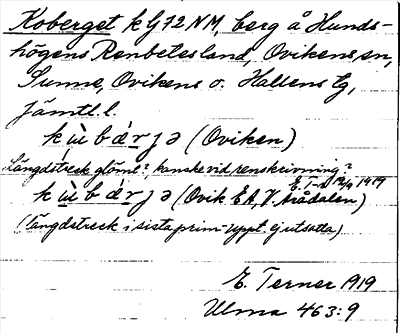 Koberget k G 72 NM, berg å Hunds-
högens Renbetesland, Ovikens sn,
Sunne, Ovikens o. Hallens tg,
Jämtl. l.
k ù̈ b ǽ r j ə (Oviken)
Längdstreck glömt?, kanske vid renskrivning?
E. T-r 12/4 1919
k ù̈ b ǽ r j ə (Ovik EA, V. Arådalen)
(Längdstreck i sista prim-uppt. ej utsatta)
E. Terner 1919
Ulma 463:9